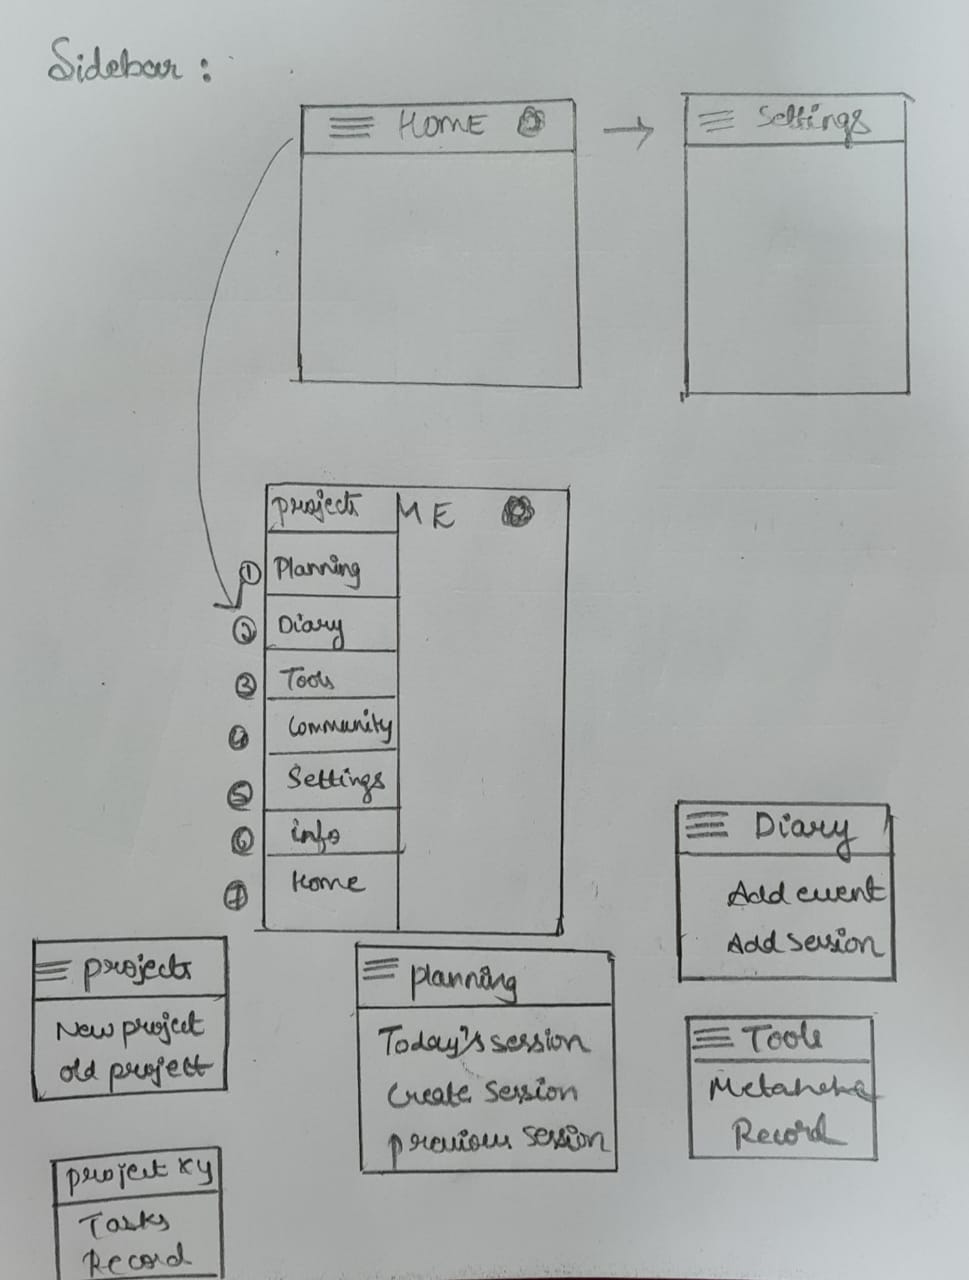 Sidebar :
HOME
Settings
projects
ME
① Planning
② Diary
③ Tools
④ Community
⑤ Settings
⑥ info
⑦ Home
Diary
Add event
Add session
projects
New project
old project
planning
Today's session
Create Session
previous session
Tools
Record
project xy
Tasks
Record